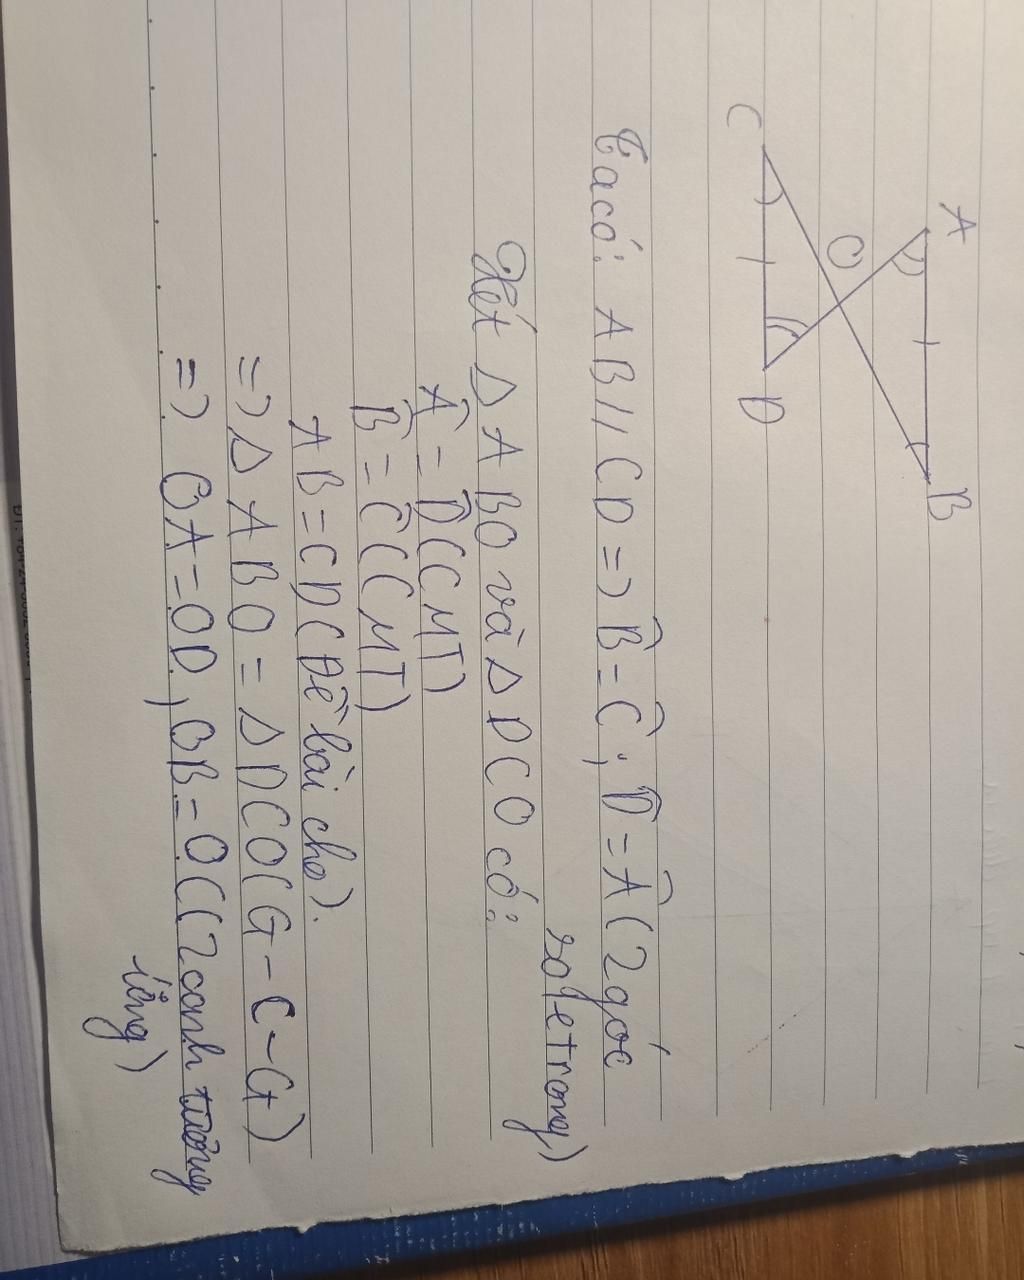 A
B
O
C
D
Ta có: AB // CD => B̂ = Ĉ; D̂ = Â (2 góc
so le trong)
Xét Δ ABO và Δ DCO có:
Â = D̂ (CMT)
B̂ = Ĉ (CMT)
AB = CD (Đề bài cho).
=> Δ ABO = Δ DCO (G-C-G)
=> OA = OD, OB = OC (2 cạnh tương
ứng)